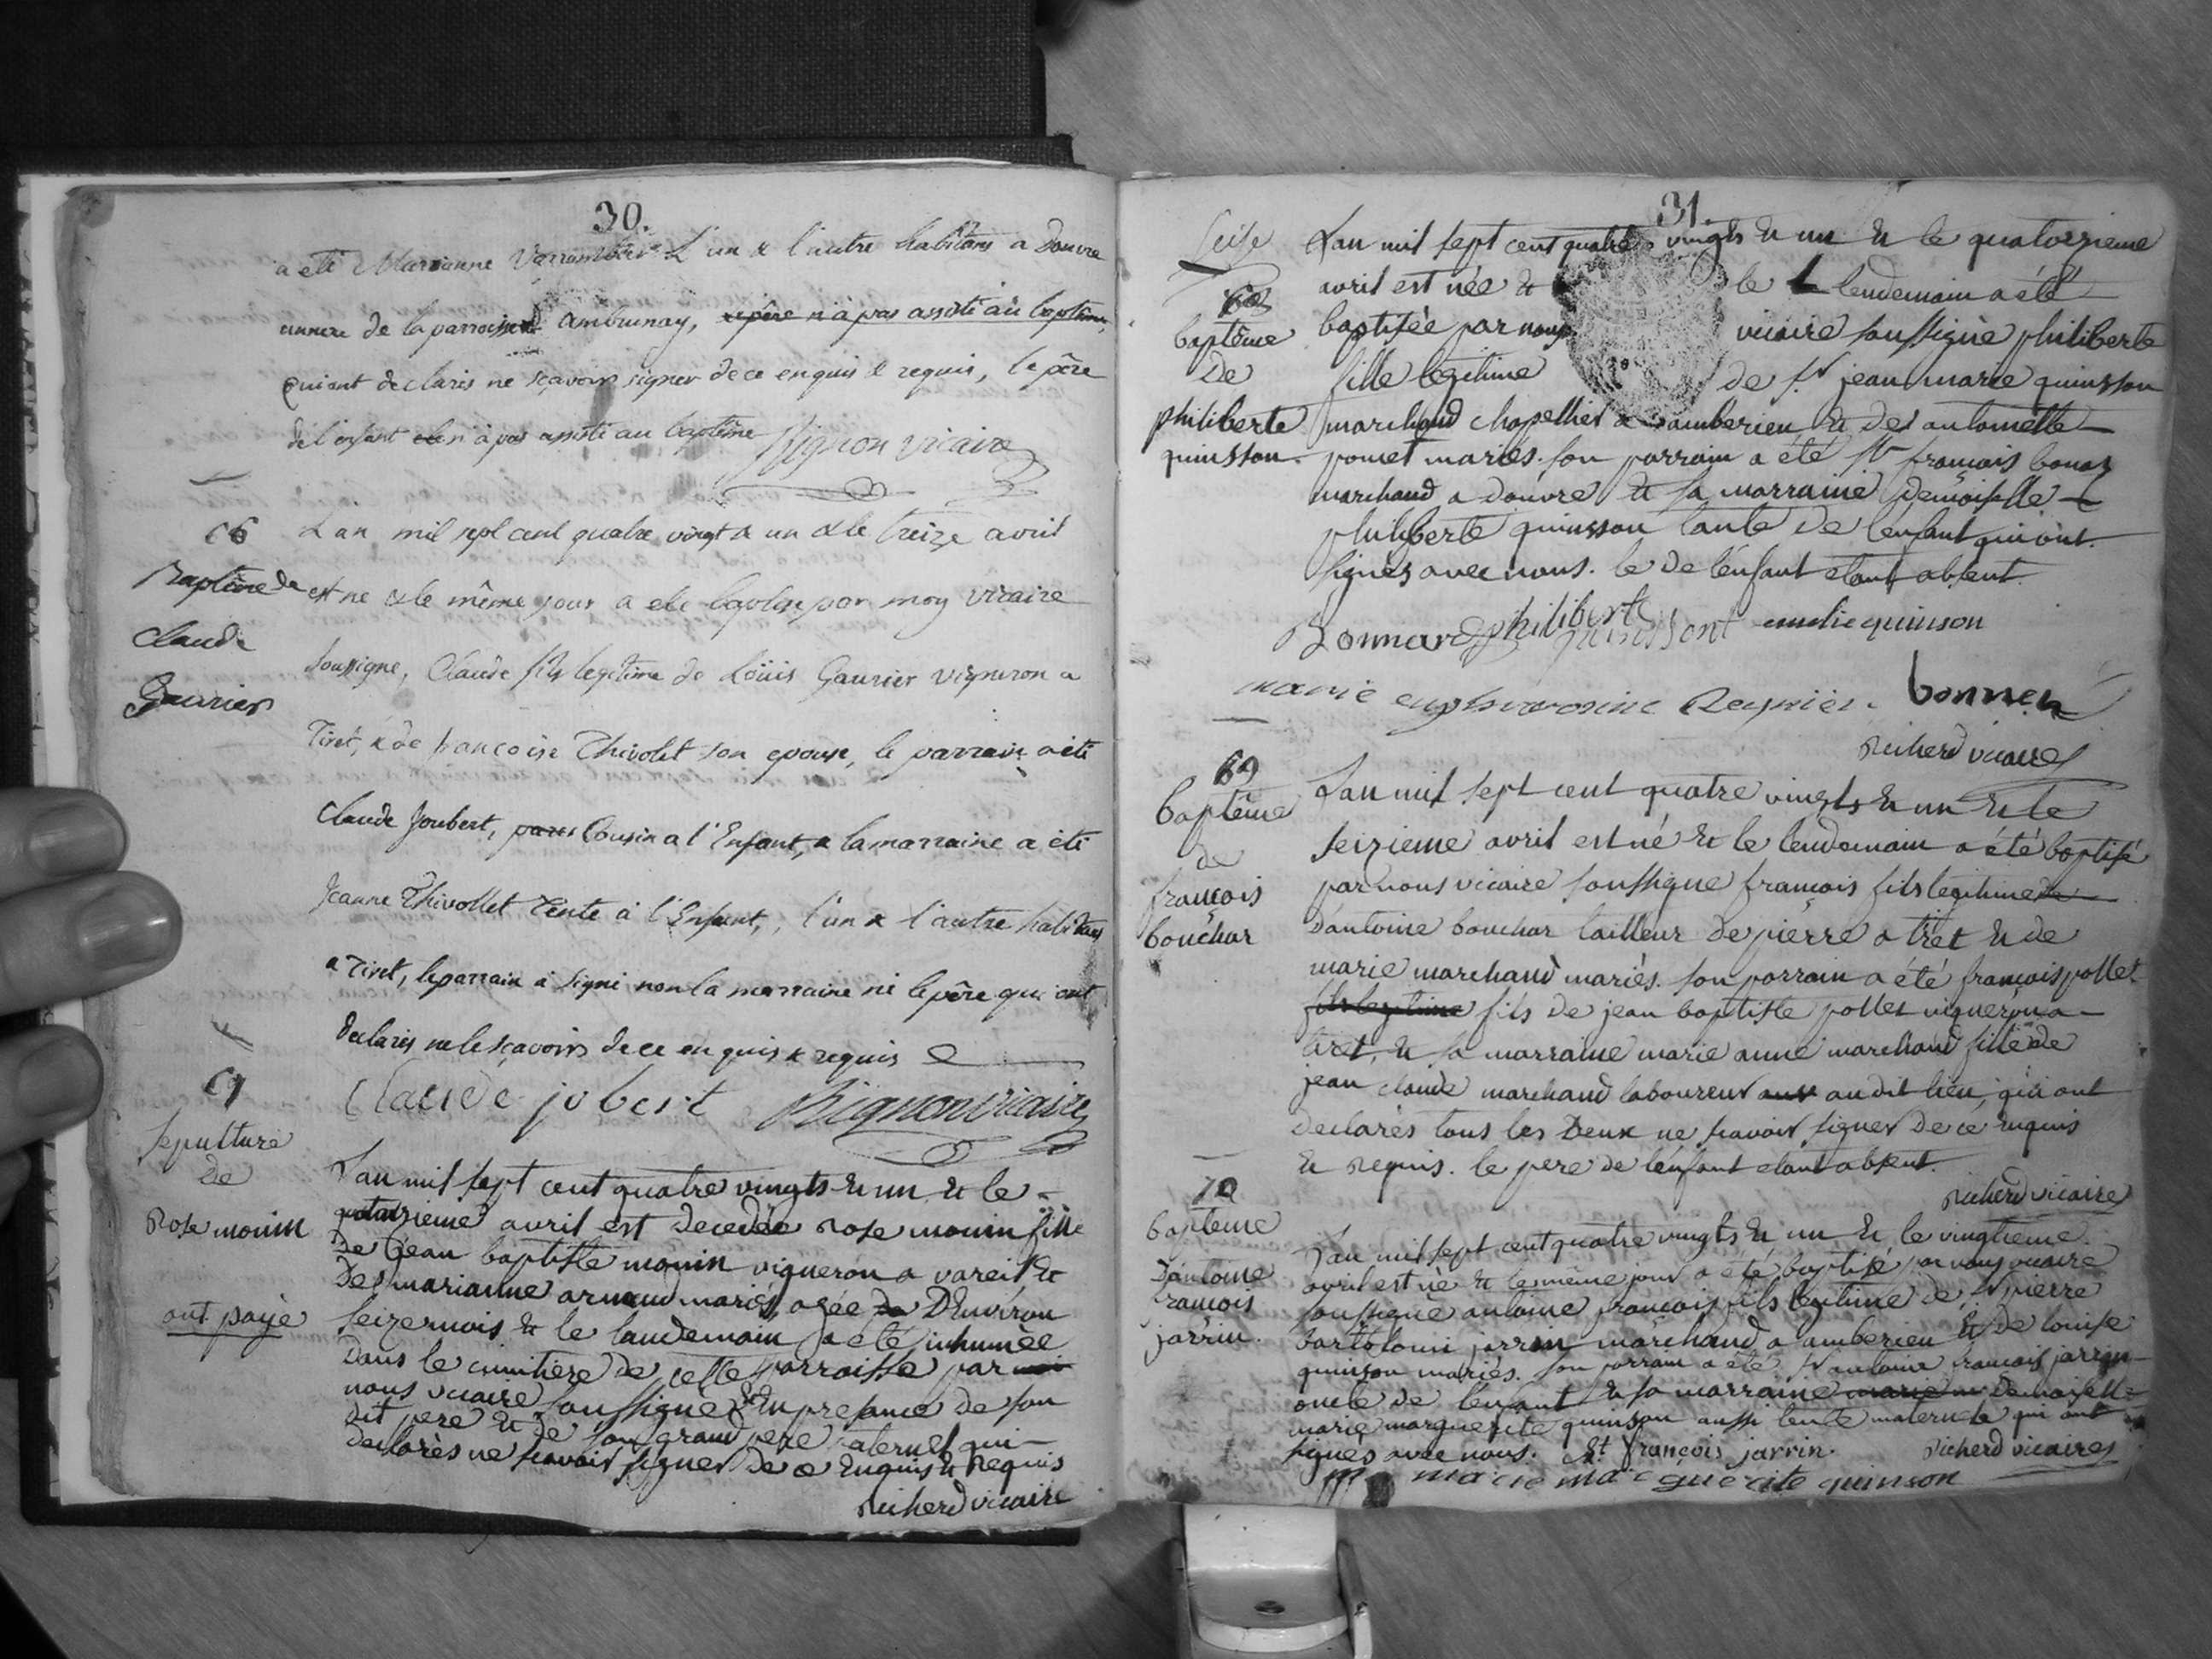 30.
a eté Marianne L'un & l'autre habitans a Douvre
annexe de la parroisse d'ambrunay, le père n'a pas assisté au baptême,
qui ont declarés ne sçavoir signer de ce enquis & requis, le père
de l'enfant n'a pas assisté au baptême Rignon vicaire
66
Baptême de
Claude
Gaurier
L'an mil sept cent quatre vingt & un & le treize avril
est ne & le même jour a eté baptise par moy vicaire
soussigne, Claude fils legitime de Loüis Gaurier vigneron a
Tiret, & de francoise Thivolet son epouse, le parrain a eté
Claude Joubert, Cousin a l'Enfant, & la marraine a eté
Jeanne Thivollet Tente à l'Enfant, l'un & l'autre habitans
a Tiret, le parrain à signé non la marraine ni le père qui ont
declarés ne le sçavoir de ce enquis & requis
Claude jobert Rignon vicaire
67
sepulture
de
Rose monin
ont payé
Lan mil sept cent quatre vingts & un & le
quatorzieme avril est decedée Rose monin fille
de jean baptiste monin vigneron a vareil &
de marianne arnaud mariés, agée de D'Environ
seize mois & le landemain a été inhumée
dans le cimitiere de cette parroisse par
nous vicaire soussigné & En presance de son
dit pere & de son grand pere paternel qui
declarès ne scavoir signer de ce Enquis & Requis
Richerd vicaire
31.
seise
68
baptême
De
philiberte
quinsson.
Lan mil sept cent quatre vingts & un & le quatorzieme
avril est née & le lendemain a été
baptisée par nous vicaire soussigné philiberte
fille legitime de sr jean marie quinsson
marchand chapellier a amberieu & de antoinette
poncet mariés. son parrain a été sr francois bonar
marchand a douvre & sa marraine demoiselle
philiberte quinsson tante de l'enfant qui ont
signez avec nous. le de l'enfant etant absent.
Bonnard philiberte quinssont quinson
marie euphrosine Reynier. bonnen
Richerd vicaire
69
baptême
de
francois
bouchar
Lan mil sept cent quatre vingts & un & le
seizieme avril est né & le lendemain a été baptisé
par nous vicaire soussigne francois fils legitime de
d'antoine bouchar tailleur de pierre a tiret & de
marie marchand mariés. son parrain a été francois pollet
fils legitime fils de jean baptiste pollet vigneron a
tiret, & sa marraine marie anne marchand fille de
jean claude marchand laboureur audit lieu, qui ont
declarès tous les deux ne scavoir signer de ce Enquis
& Requis. le pere de l'enfant etant absent.
Richerd vicaire
70
baptême
D'antoine
francois
jarrin.
Lan mil sept cent quatre vingts & un & le vingtieme
avril est né & le même jour a été baptisé par nous vicaire
soussigné antoine francois fils legitime de sr pierre
bartolomi jarrin marchand a amberieu & de louise
quinson mariés. son parrain a été sr antoine francois jarrin
oncle de l'enfant & sa marraine marie Demoiselle
marie marguerite quinson aussi tente maternele qui ont
signés avec nous. françois jarrin. Richerd vicaire
marie marguerite quinson